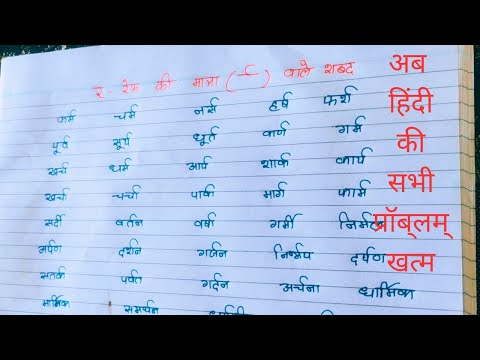 र - रेफ की मात्रा ( र्‍ ) वाले शब्द
फर्म चर्म नर्स हर्ष फर्श
पूर्व सूर्य धूर्त वर्ण गर्म
खर्च धर्म आर्य शार्क कार्य
खर्चा चर्चा पार्क मार्ग फार्म
सर्दी बर्तन वर्षा गर्मी
अर्पण दर्शन गर्जन निर्भय दर्पण
सतर्क पर्वत गर्दन अर्चना धार्मिक
मार्मिक समर्थन
अब
हिंदी
की
सभी
प्रॉब्लम्
खत्म